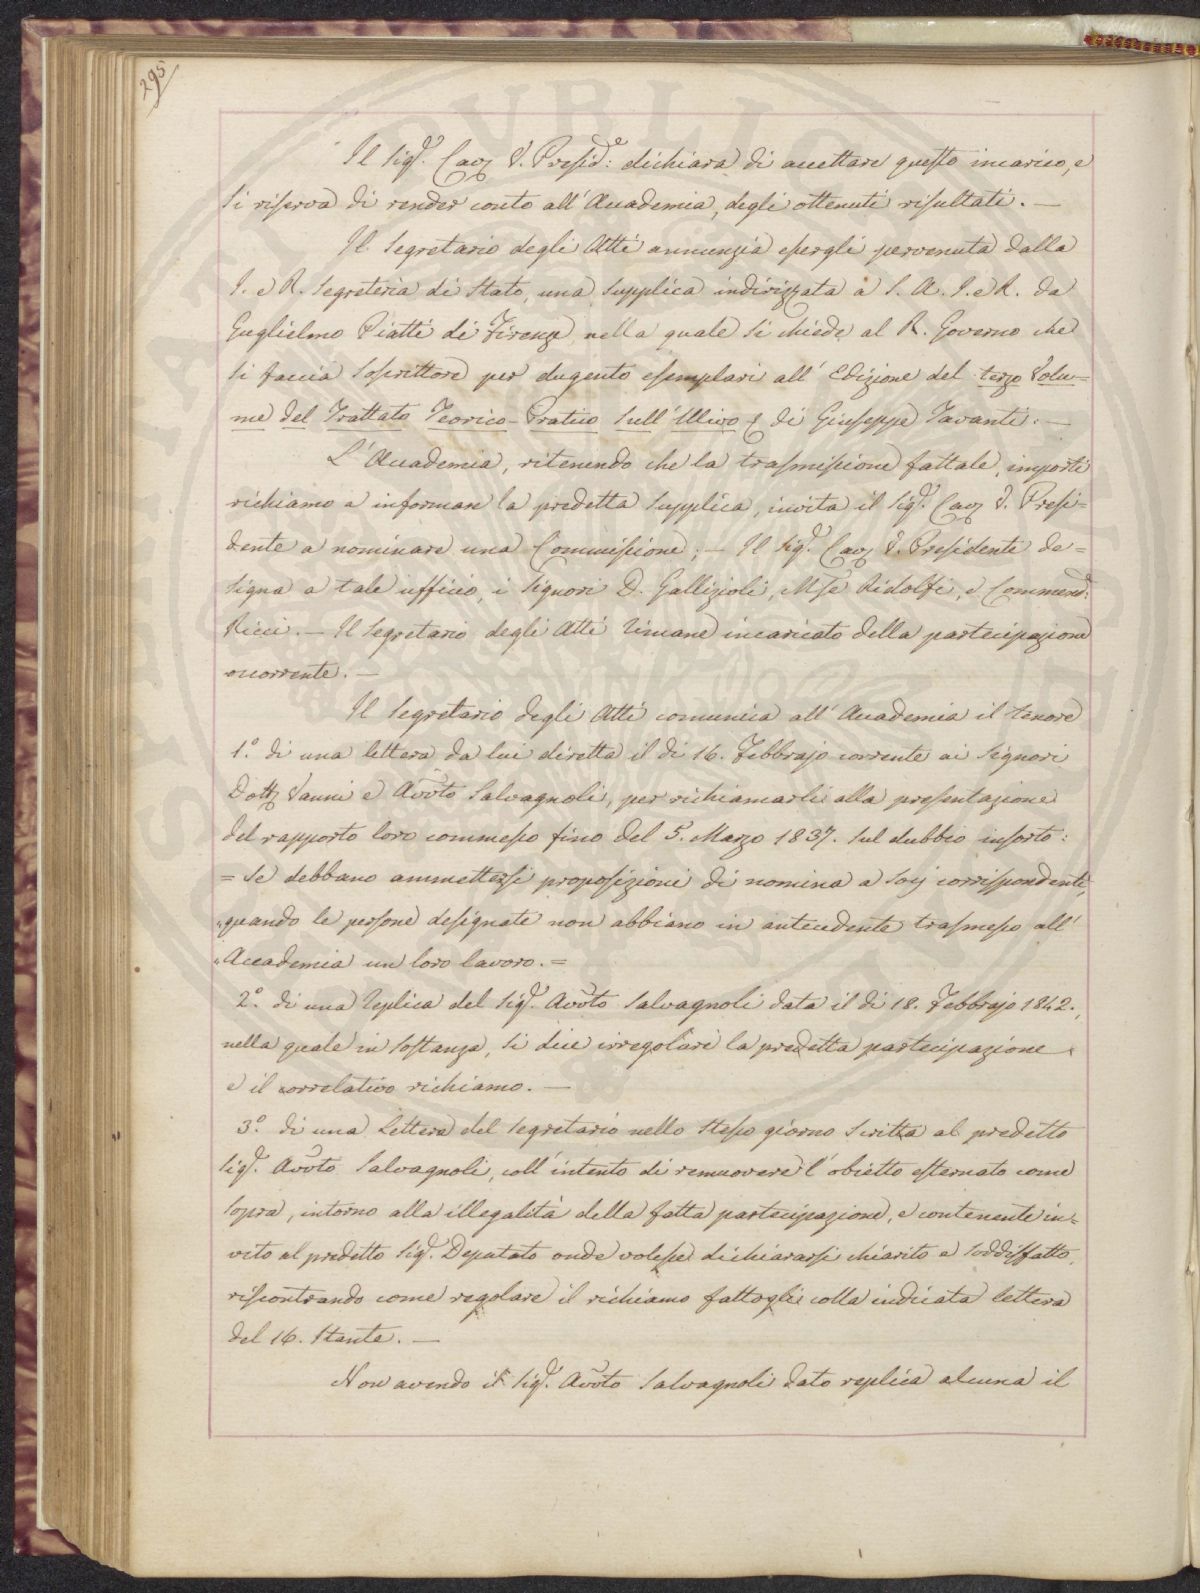 295
Il Sig.r Cav. V. Presid.e: dichiara di accettare questo incarico, e
si riserva di render conto all'Accademia, degli ottenuti risultati. —
Il Segretario degli Atti annunzia essergli pervenuta dalla
I. e R. Segreteria di Stato, una supplica indirizzata a S. A. I. e R. da
Guglielmo Piatti di Firenze, nella quale si chiede al R. Governo che
si faccia soscrittore per dugento esemplari all'Edizione del terzo Volu=
me del Trattato Teorico-Pratico sull'Ulivo di Giuseppe Tavanti. —
L'Accademia, ritenendo che la trasmissione fattale, importi
richiamo a informare la predetta supplica, invita il Sig.r Cav. V. Presi=
dente a nominare una Commissione; — Il Sig.r Cav. V. Presidente de=
signa a tale ufficio, i Signori D. Gallizioli, Mse Ridolfi, e Commend:
Ricci. — Il Segretario degli Atti rimane incaricato della partecipazione
occorrente. —
Il Segretario degli Atti comunica all'Accademia il tenore
1.° di una lettera da lui diretta il di 16. Febbrajo corrente ai Signori
Dott. Vanni e Avvto Salvagnoli, per richiamarli alla presentazione
del rapporto loro commesso fino del 5. Marzo 1837. sul dubbio insorto:
= Se debbano ammettersi proposizioni di nomina a Socj corrispondenti,
"quando le persone designate non abbiano in antecedente trasmesso all'
"Accademia un loro lavoro. =
2.° di una replica del Sig.r Avvto Salvagnoli data il di 18. Febbrajo 1842.,
nella quale in sostanza, si dice irregolare la predetta partecipazione
e il correlativo richiamo. —
3.° di una Lettera del Segretario nello stesso giorno scritta al predetto
Sig.r Avvto Salvagnoli, coll'intento di remuovere l'obietto esternato come
sopra, intorno alla illegalità della fatta partecipazione, e contenente in=
vito al predetto Sig.r Deputato onde volesse dichiararsi chiarito e soddisfatto,
riscontrando come regolare il richiamo fattogli colla indicata lettera
del 16. Stante. —
Non avendo il Sig.r Avvto Salvagnoli dato replica alcuna il